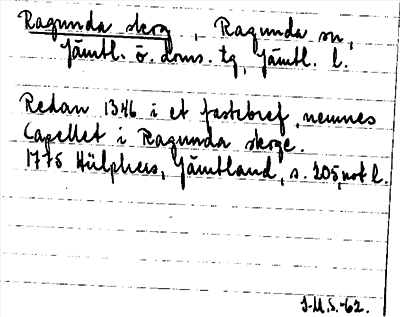 Ragunda skog, Ragunda sn,
Jämtl. ö. doms. tg, Jämtl. l.
Redan 1346 i et fastebref, nemnes
Capellet i Ragunda skoge.
1775 Hülphers, Jämtland, s. 205, not l.
J.M.S.-62.